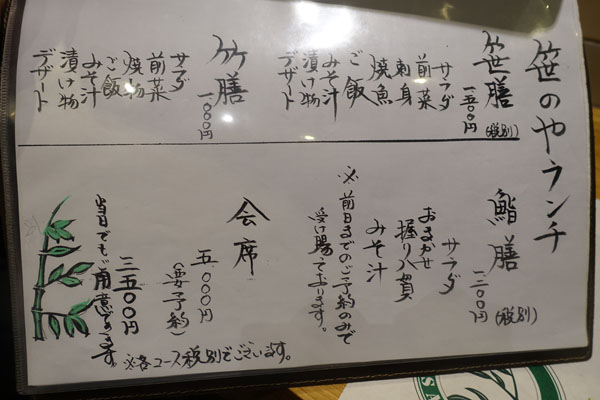 笹のやランチ
笹膳
一五〇〇円
(税別)
サラダ
前菜
刺身
焼魚
ご飯
みそ汁
漬け物
デザート
竹膳
一〇〇〇円
サラダ
前菜
焼物
ご飯
みそ汁
漬け物
デザート
鮨膳
(税別)
サラダ
おまかせ
握り八貫
みそ汁
※前日までのご予約のみで
受け賜っております。
会席
五、〇〇〇円
(要予約)
三五〇〇円
当日でもご用意できます。
※各コース税別でございます。